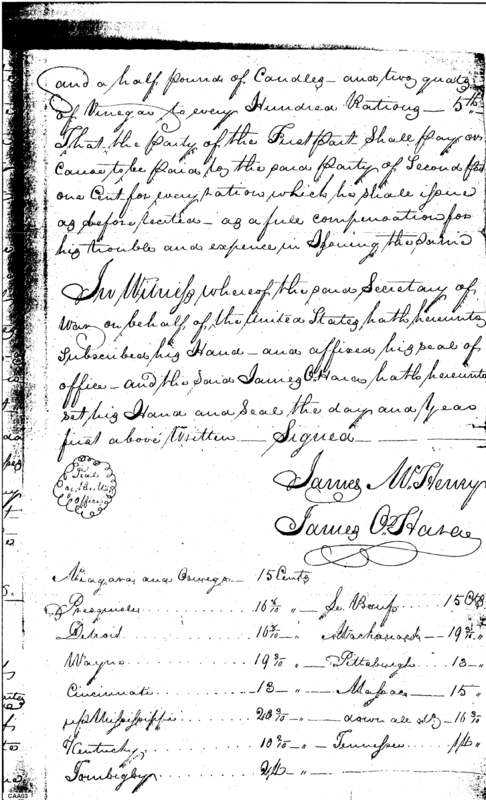 and a half pounds of Candles – and two quarts
of Vinegar to every Hundred Rations – 5th
That the Party of the First part Shall pay or
cause to be paid to the said Party of Second part
one Cent for every ration which he shall issue
as before recited – as a full compensation for
his trouble and expence in Issuing the same
In Witness whereof the said Secretary of
War on behalf of the United States, hath hereunto
Subscribed his Hand – and affixed his seal of
office – and the Said James O'Hara hath hereunto
set his Hand and Seal the day and Year
first above Written – Signed –
Seal
of the W
Office
James McHenry
James O'Hara
Niagara and Oswego – 15 Cents
Presquisle 16 /10 " – Le Boeuf 15 Cts
Detroit 16 /10 – " Mackanack – 19 /10 "
Wayne 19 /10 – Pittsburgh 13 – "
Cincinnati 13 – " Massac – 15 "
up Mississippi 20 /10 – down all – 16 /10
Kentucky 10 /10 " – Tennessee 14 "
Tombigby 24 – "
CAA03